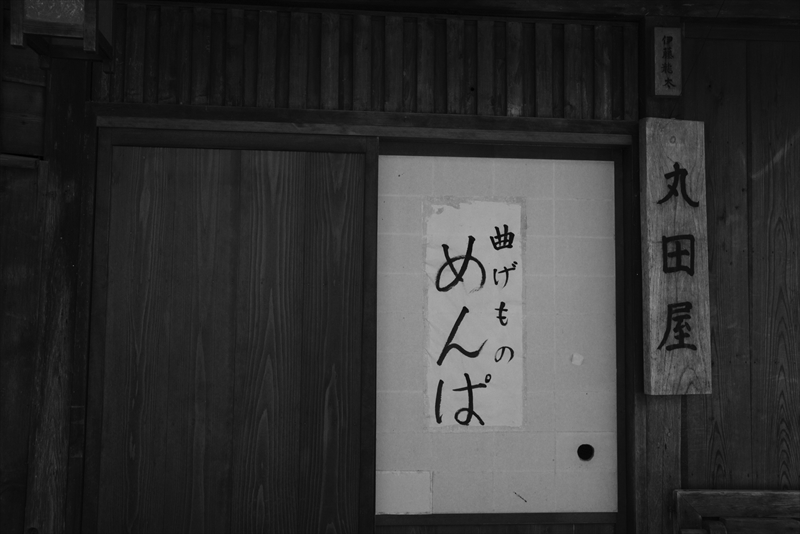 伊藤
丸田屋
曲げもの
めんぱ